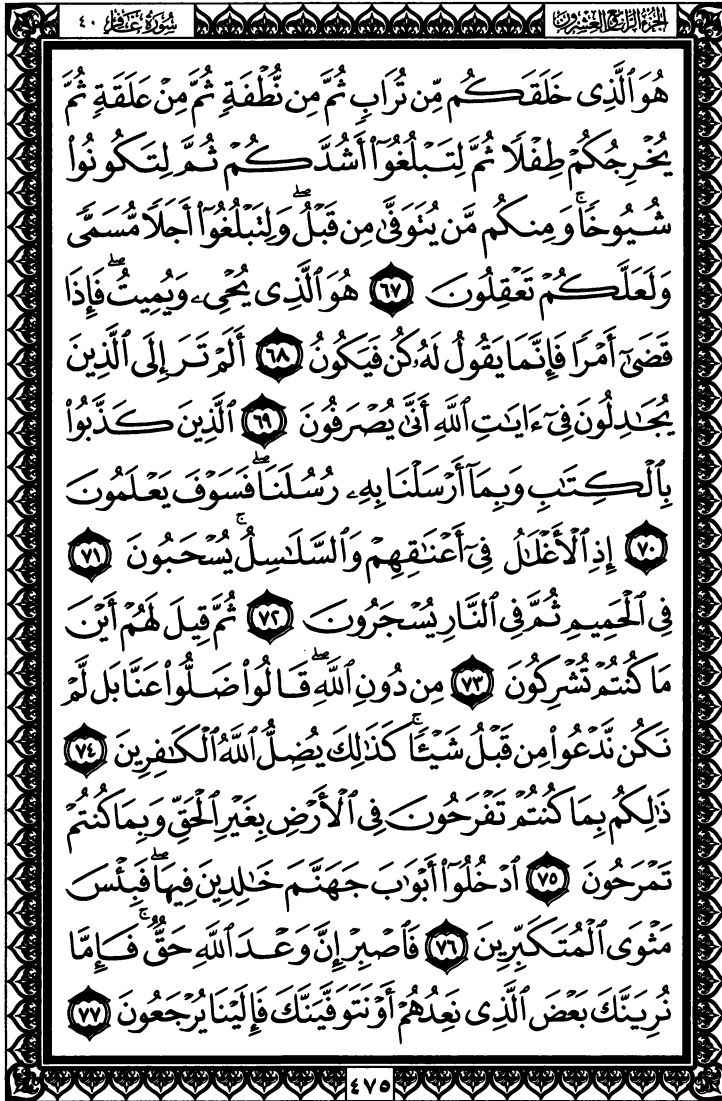 الجزء الرابع والعشرون
سورة غافر ٤٠
هُوَ ٱلَّذِى خَلَقَكُم مِّن تُرَابٍ ثُمَّ مِن نُّطْفَةٍ ثُمَّ مِنْ عَلَقَةٍ ثُمَّ
يُخْرِجُكُمْ طِفْلًا ثُمَّ لِتَبْلُغُوٓا۟ أَشُدَّكُمْ ثُمَّ لِتَكُونُوا۟
شُيُوخًا ۚ وَمِنكُم مَّن يُتَوَفَّىٰ مِن قَبْلُ ۖ وَلِتَبْلُغُوٓا۟ أَجَلًا مُّسَمًّى
وَلَعَلَّكُمْ تَعْقِلُونَ ٦٧ هُوَ ٱلَّذِى يُحْىِۦ وَيُمِيتُ ۖ فَإِذَا
قَضَىٰٓ أَمْرًا فَإِنَّمَا يَقُولُ لَهُۥ كُن فَيَكُونُ ٦٨ أَلَمْ تَرَ إِلَى ٱلَّذِينَ
يُجَـٰدِلُونَ فِىٓ ءَايَـٰتِ ٱللَّهِ أَنَّىٰ يُصْرَفُونَ ٦٩ ٱلَّذِينَ كَذَّبُوا۟
بِٱلْكِتَـٰبِ وَبِمَآ أَرْسَلْنَا بِهِۦ رُسُلَنَا ۖ فَسَوْفَ يَعْلَمُونَ
٧٠ إِذِ ٱلْأَغْلَـٰلُ فِىٓ أَعْنَـٰقِهِمْ وَٱلسَّلَـٰسِلُ ۚ يُسْحَبُونَ ٧١
فِى ٱلْحَمِيمِ ثُمَّ فِى ٱلنَّارِ يُسْجَرُونَ ٧٢ ثُمَّ قِيلَ لَهُمْ أَيْنَ
مَا كُنتُمْ تُشْرِكُونَ ٧٣ مِن دُونِ ٱللَّهِ ۖ قَالُوا۟ ضَلُّوا۟ عَنَّا بَل لَّمْ
نَكُن نَّدْعُوا۟ مِن قَبْلُ شَيْـًٔا ۚ كَذَٰلِكَ يُضِلُّ ٱللَّهُ ٱلْكَـٰفِرِينَ ٧٤
ذَٰلِكُم بِمَا كُنتُمْ تَفْرَحُونَ فِى ٱلْأَرْضِ بِغَيْرِ ٱلْحَقِّ وَبِمَا كُنتُمْ
تَمْرَحُونَ ٧٥ ٱدْخُلُوٓا۟ أَبْوَٰبَ جَهَنَّمَ خَـٰلِدِينَ فِيهَا ۖ فَبِئْسَ
مَثْوَى ٱلْمُتَكَبِّرِينَ ٧٦ فَٱصْبِرْ إِنَّ وَعْدَ ٱللَّهِ حَقٌّ ۚ فَإِمَّا
نُرِيَنَّكَ بَعْضَ ٱلَّذِى نَعِدُهُمْ أَوْ نَتَوَفَّيَنَّكَ فَإِلَيْنَا يُرْجَعُونَ ٧٧
٤٧٥